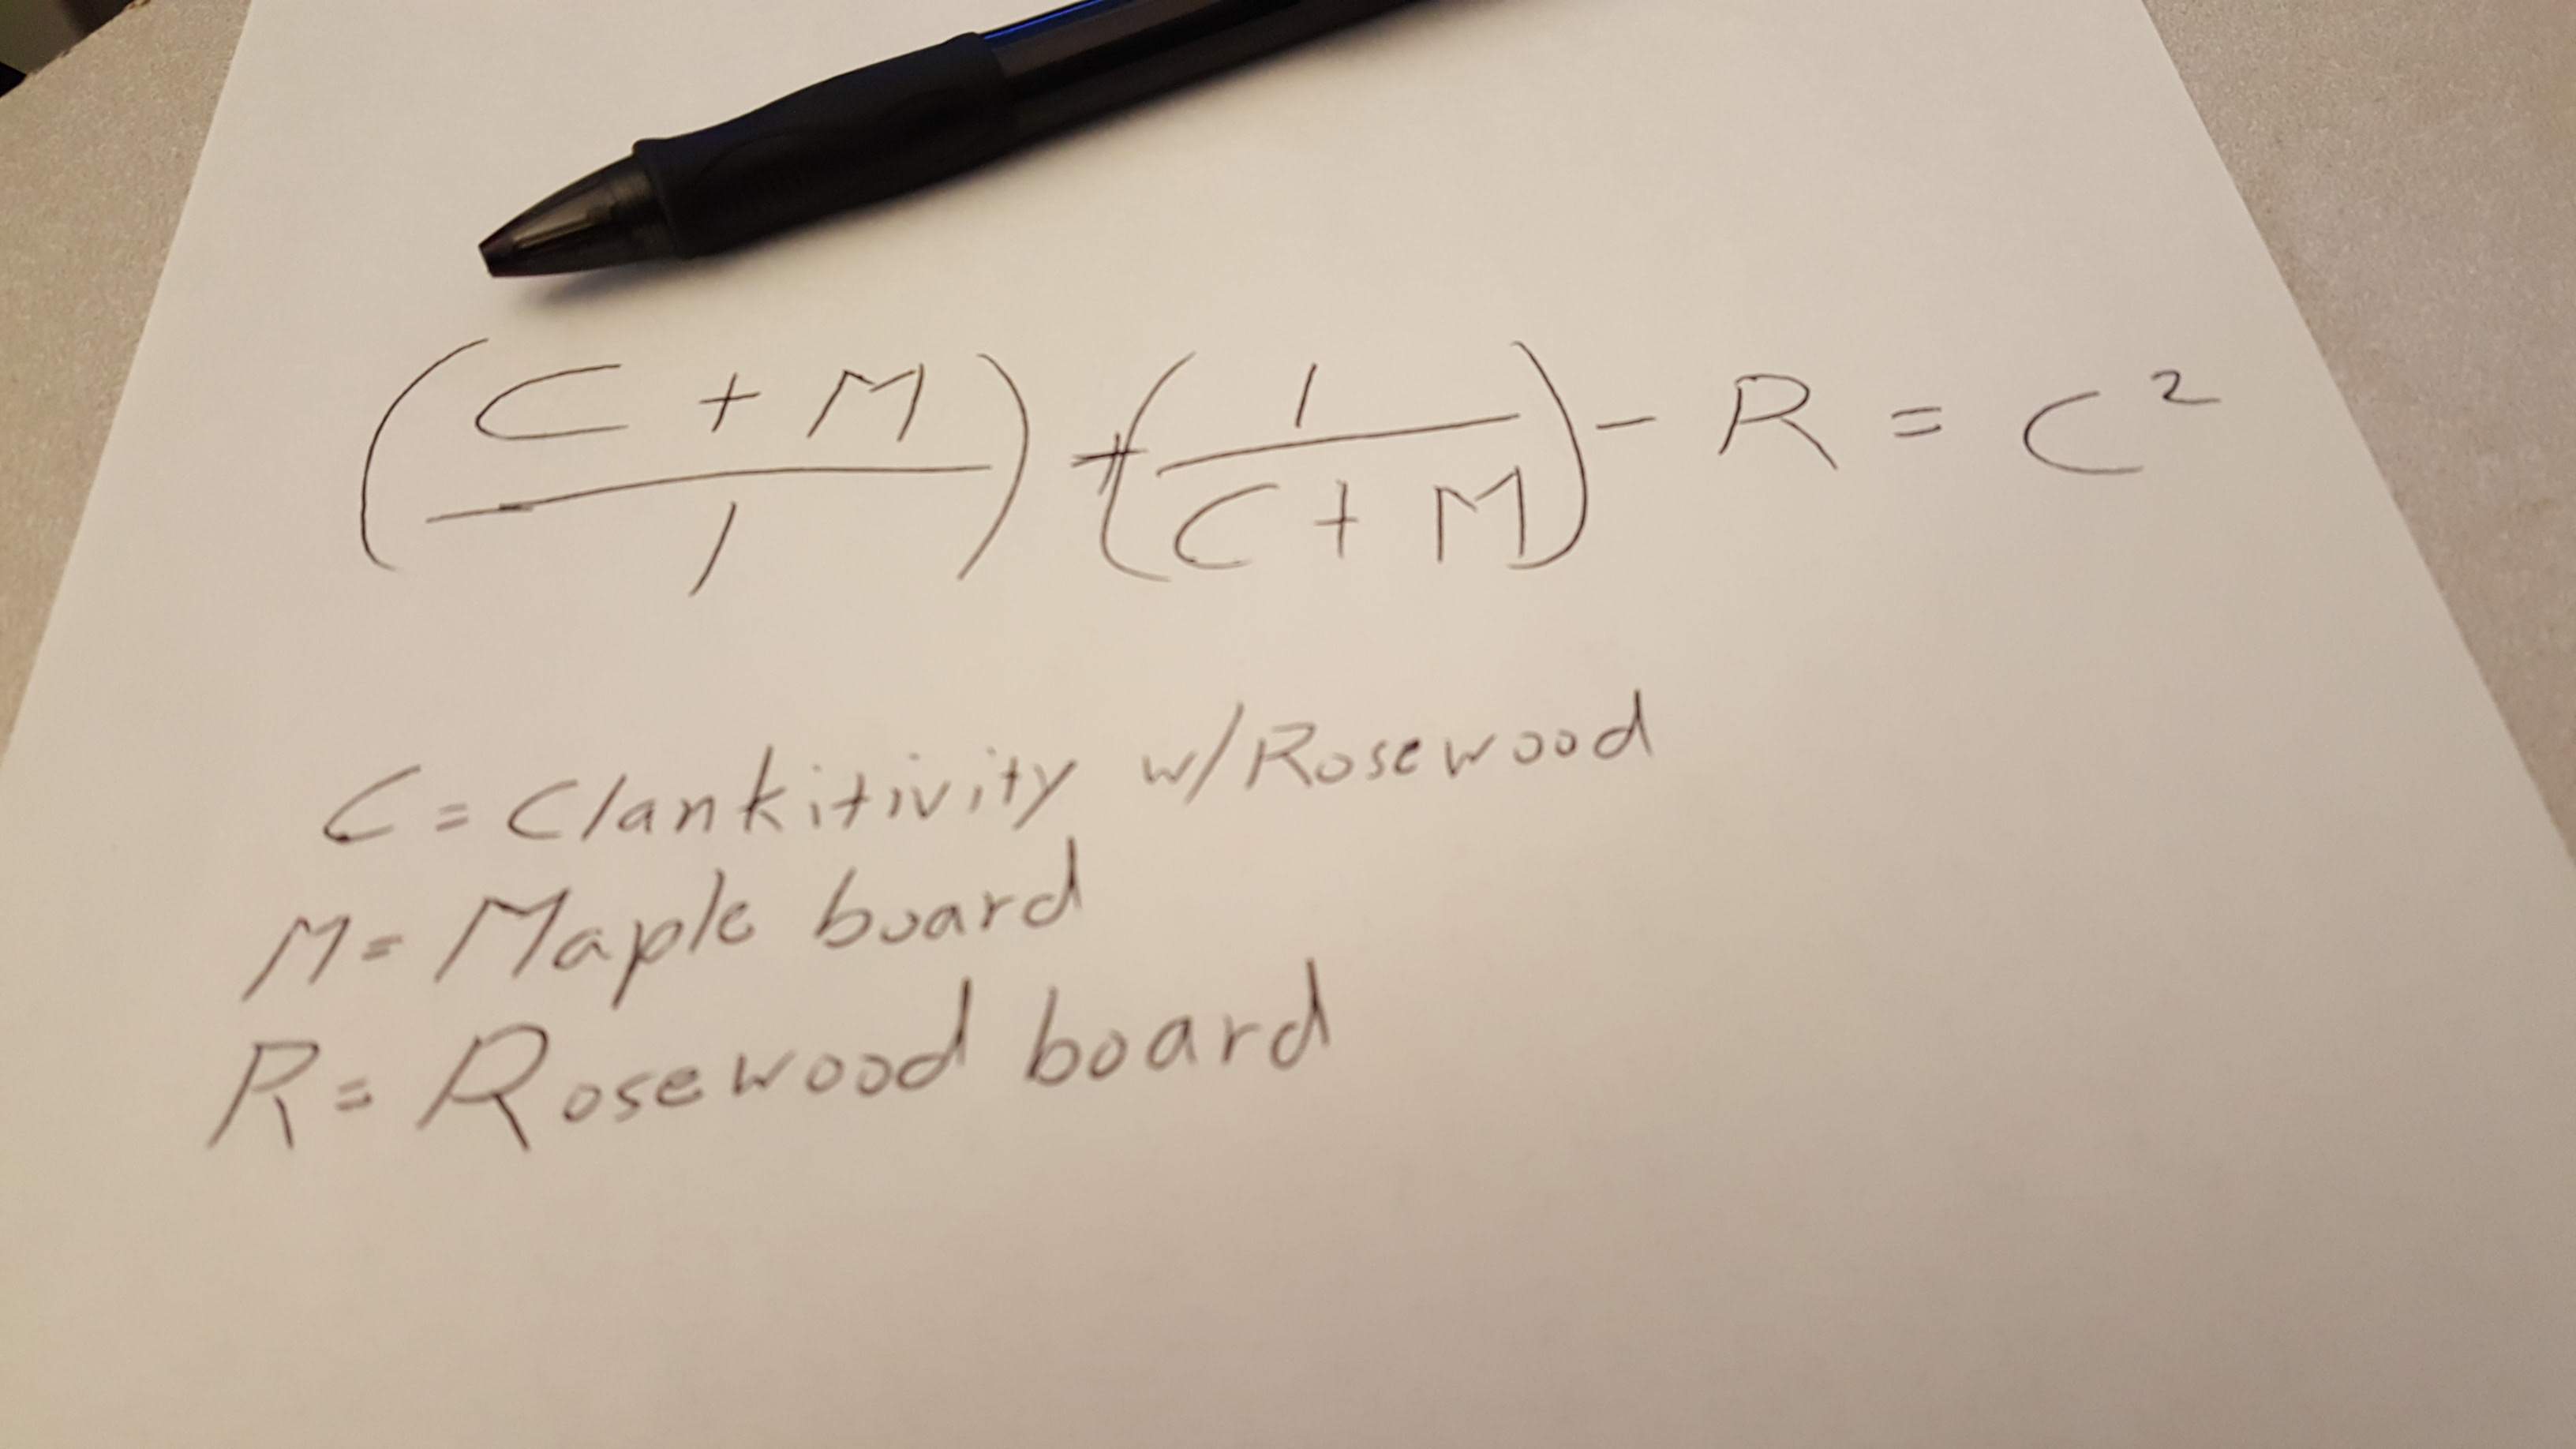 (C + M / 1) + (1 / C + M) - R = C²
C = Clankitivity w/Rosewood
M = Maple board
R = Rosewood board